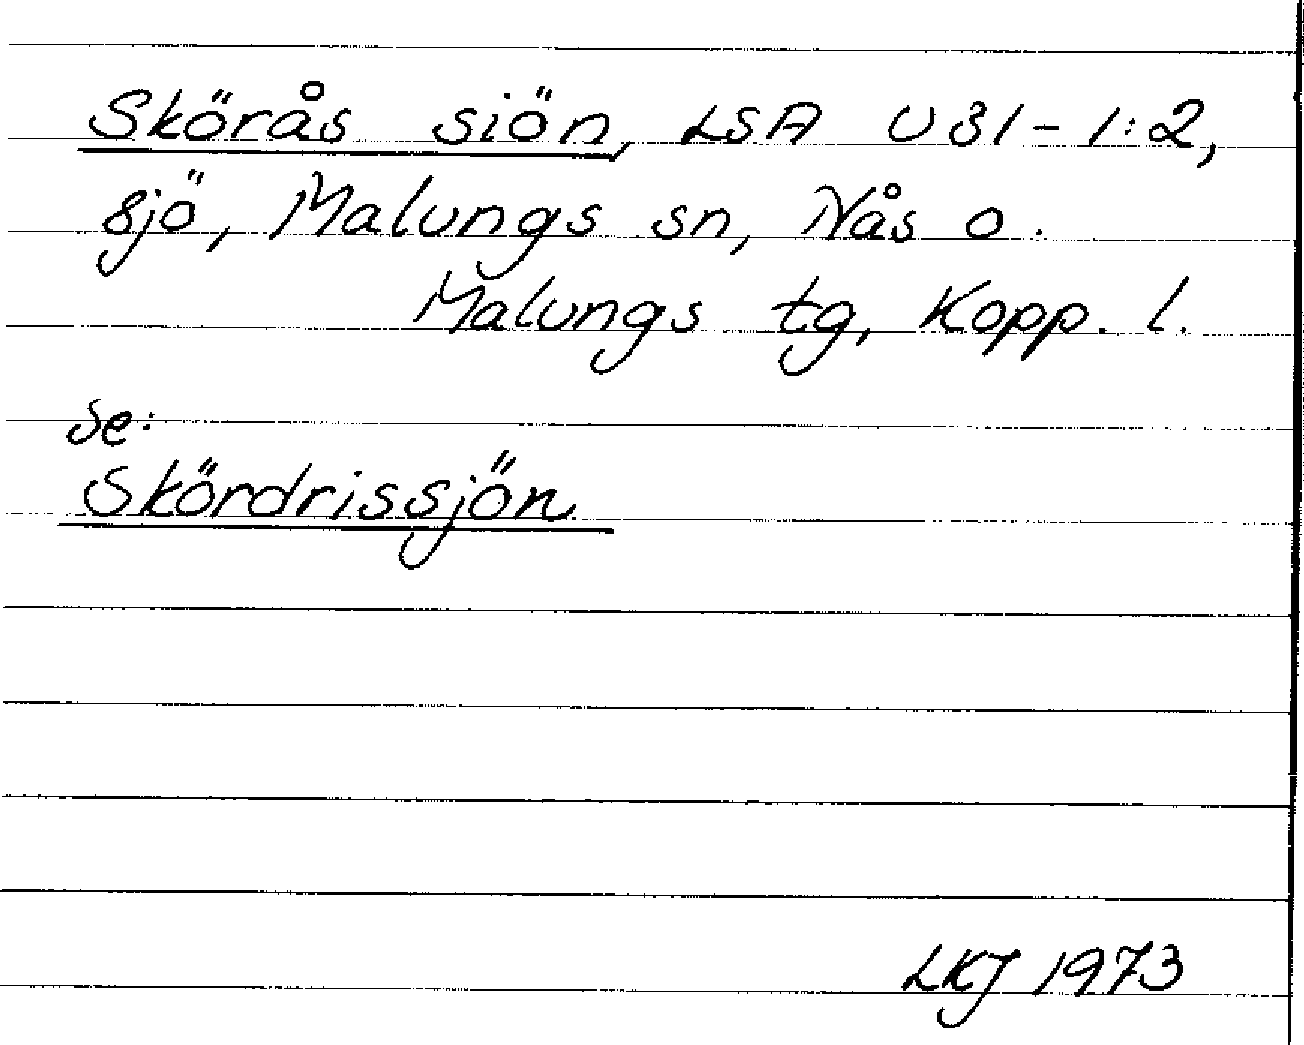 Skörås siön, LSA U31-1:2,
sjö, Malungs sn, Nås o.
Malungs tg, Kopp. l.
Se:
Skördrissjön
LKJ 1973